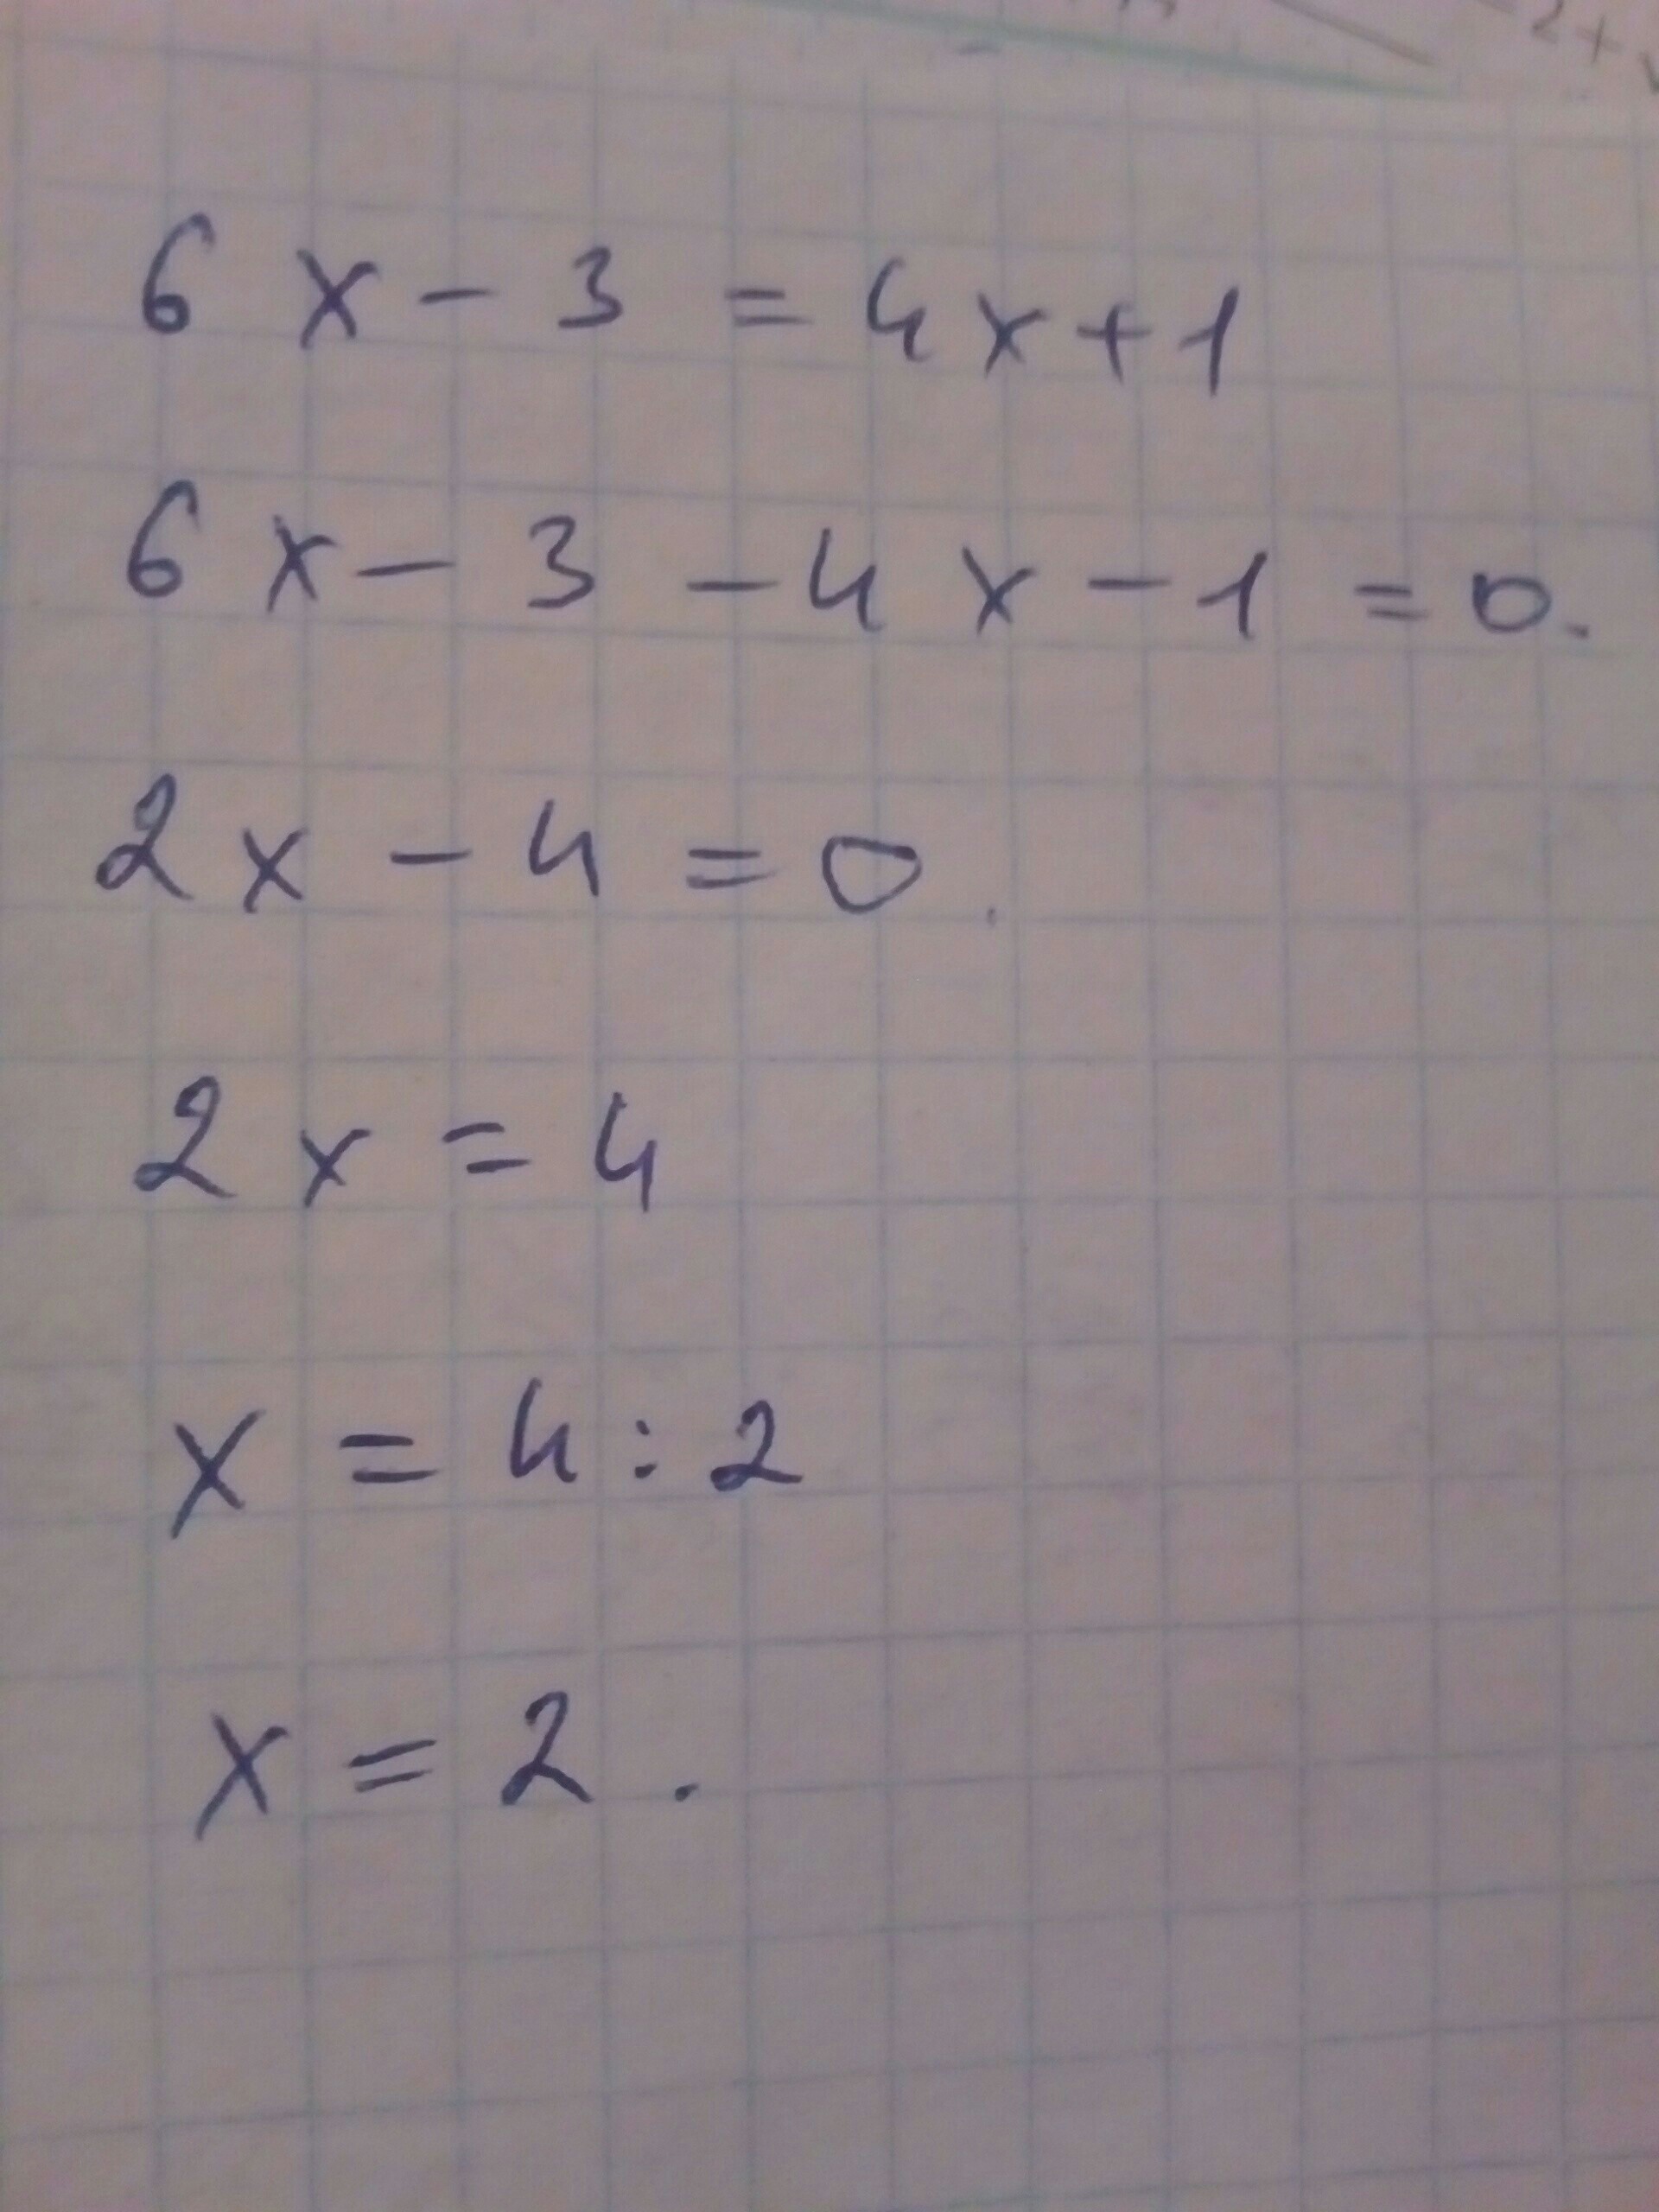 2+
6x - 3 = 4x + 1
6x - 3 - 4x - 1 = 0.
2x - 4 = 0.
2x = 4
x = 4 : 2
x = 2.